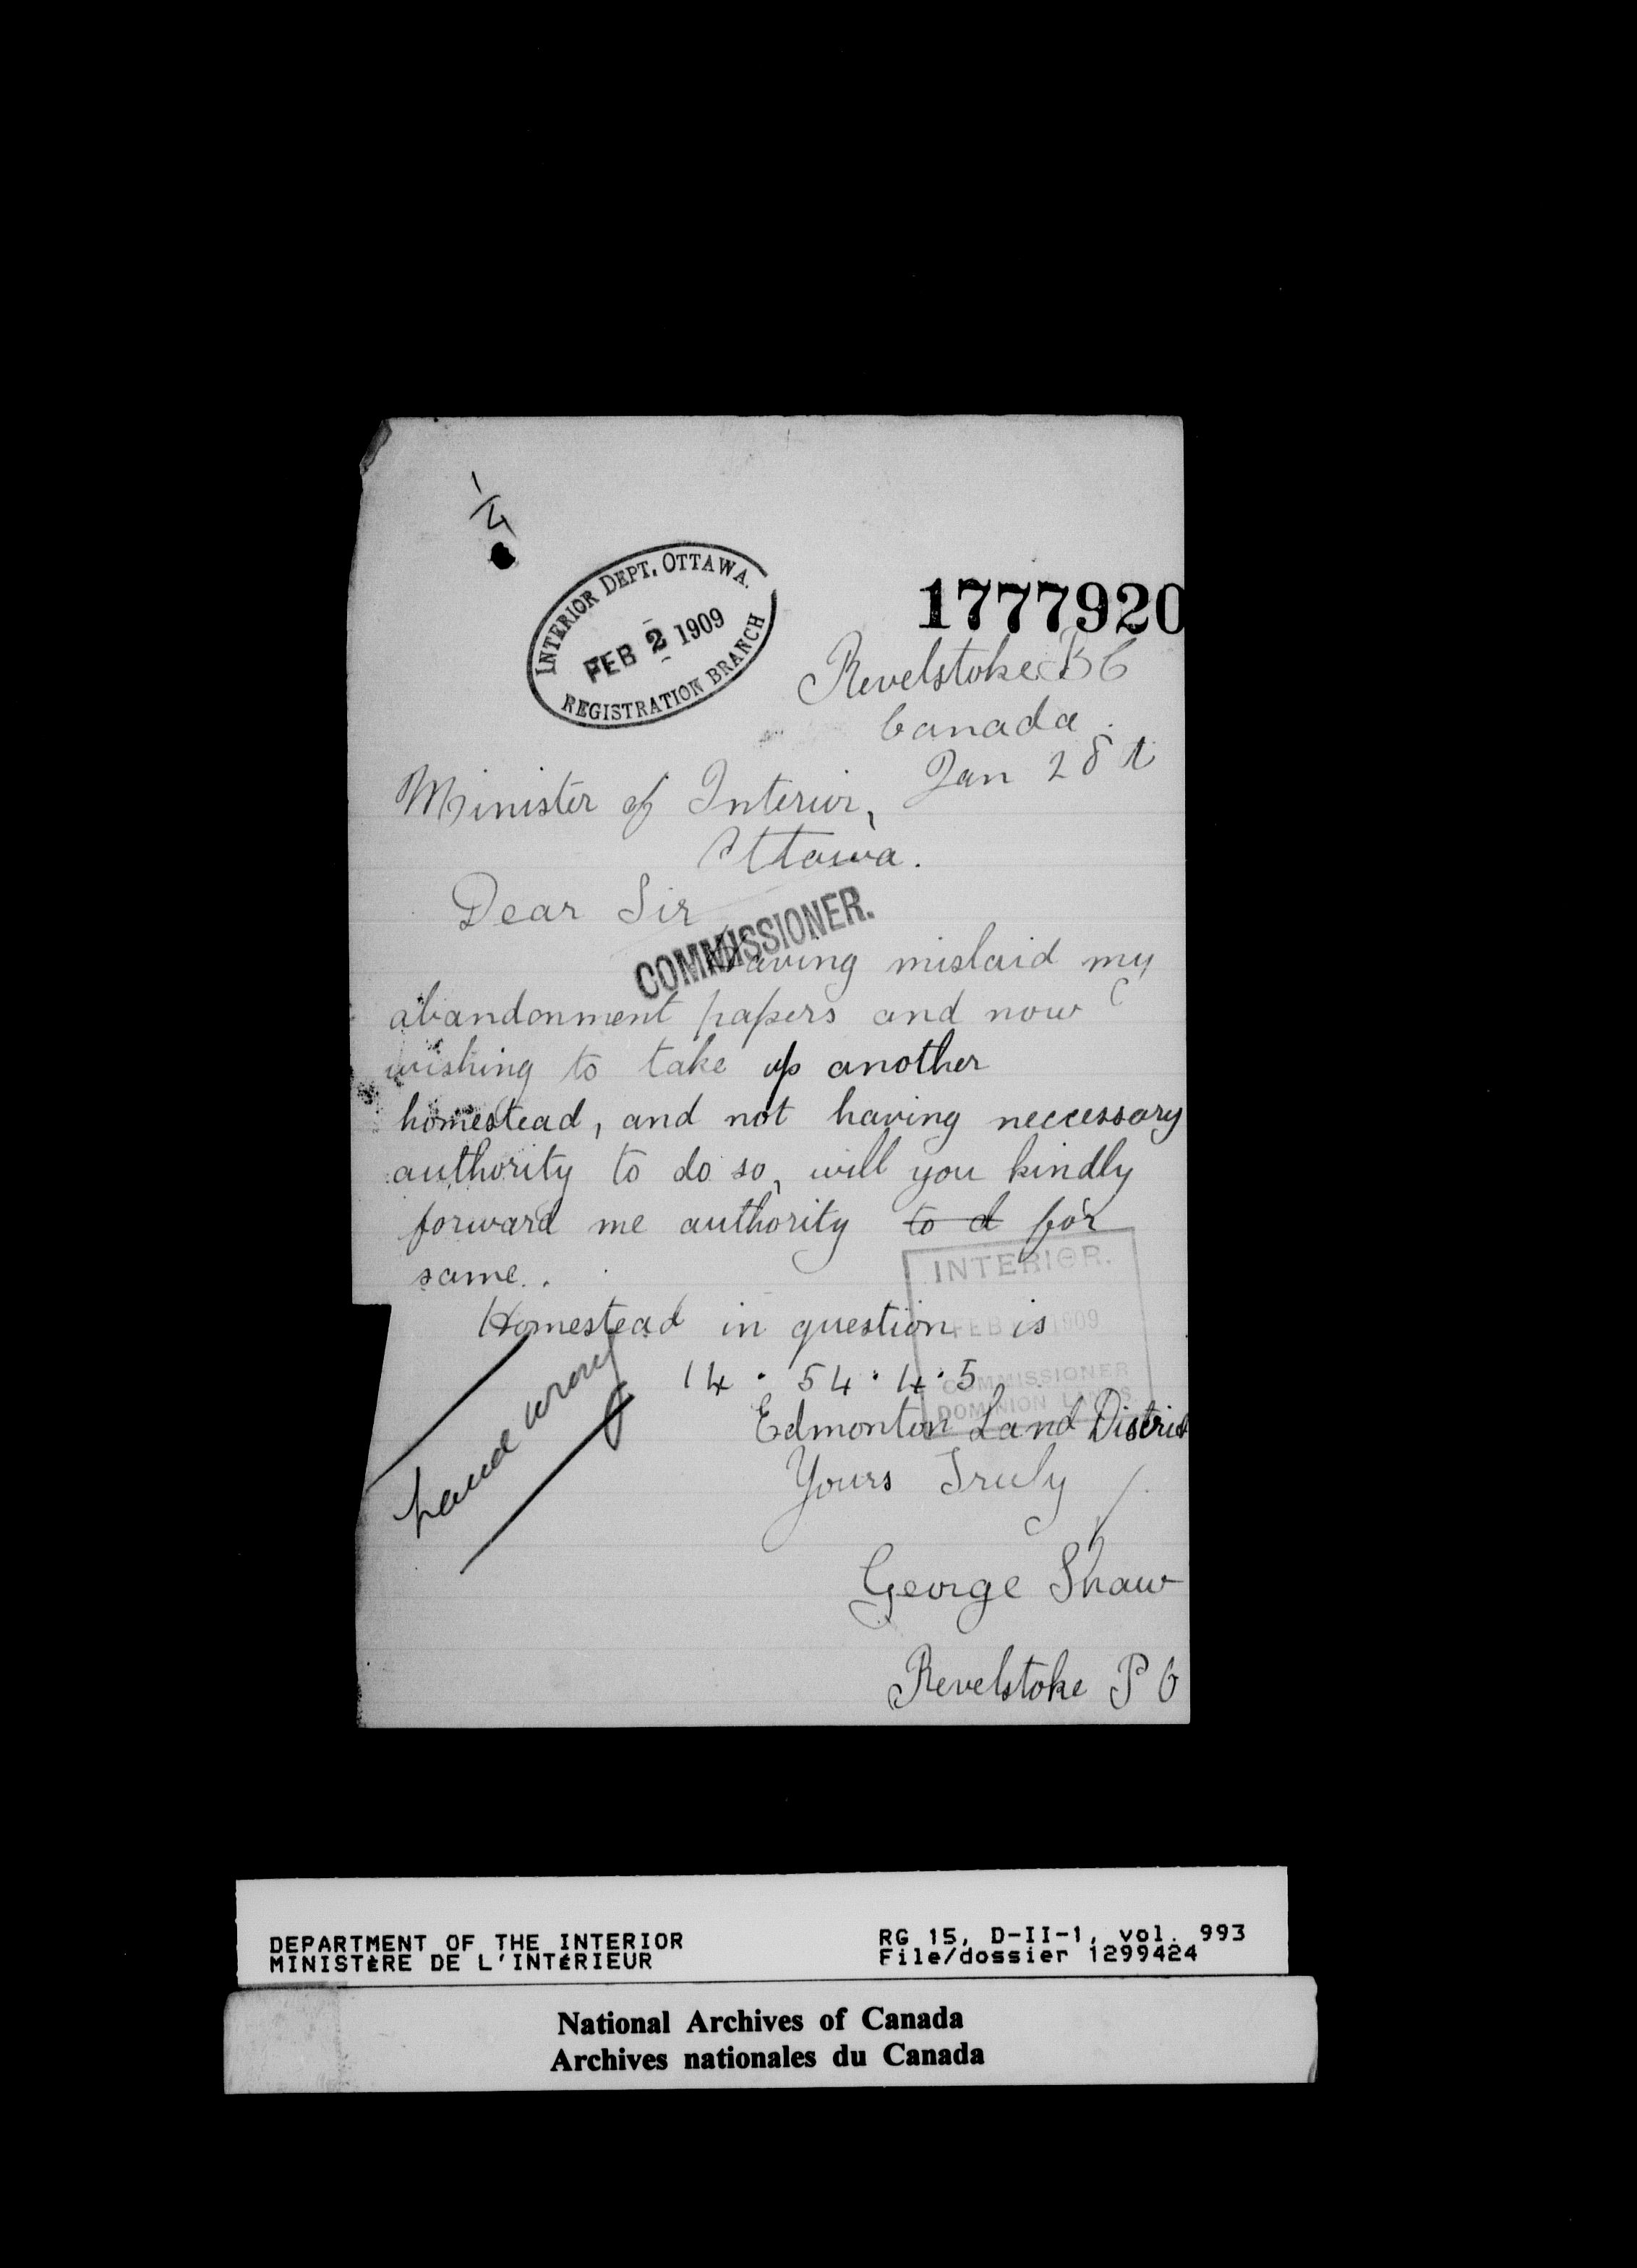 1/4
INTERIOR DEPT. OTTAWA.
FEB 2 1909
REGISTRATION BRANCH
1777920
Revelstoke B C
Canada.
Jan 28th
Minister of Interior,
Ottawa.
Dear Sir
COMMISSIONER.
Having mislaid my
abandonment papers and now
wishing to take up another
homestead, and not having neccessary
authority to do so, will you kindly
forward me authority to d for
same.
INTERIOR.
FEB 1909
COMMISSIONER
DOMINION LANDS
Homestead in question is
14 . 54 . 4 . 5
Edmonton Land District
Land wrong
Yours Truly
George Shaw
Revelstoke P O
DEPARTMENT OF THE INTERIOR
MINISTÈRE DE L'INTÉRIEUR
RG 15, D-II-1, vol. 993
File/dossier 1299424
National Archives of Canada
Archives nationales du Canada